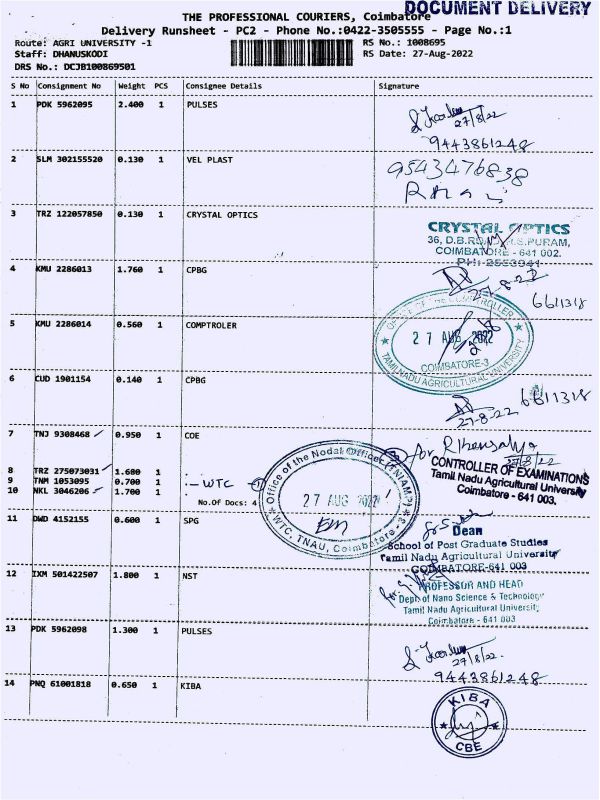 DOCUMENT DELIVERY
THE PROFESSIONAL COURIERS, Coimbatore
Delivery Runsheet - PC2 - Phone No.:0422-3505555 - Page No.:1
Route: AGRI UNIVERSITY -1 RS No.: 1008695
Staff: DHANUSKODI RS Date: 27-Aug-2022
DRS No.: DCJB100869501
S No Consignment No Weight PCS Consignee Details Signature
1 PDK 5962095 2.400 1 PULSES
27/8/22
9443861248
2 SLM 302155520 0.130 1 VEL PLAST
9543476838
3 TRZ 122057850 0.130 1 CRYSTAL OPTICS
CRYSTAL OPTICS
36, D.B.ROAD, R.S.PURAM,
COIMBATORE - 641 002.
PH: 2553941
4 KMU 2286013 1.760 1 CPBG
27-8-22
6611318
5 KMU 2286014 0.560 1 COMPTROLER
OFFICE OF THE COMPTROLLER
27 AUG 2022
COIMBATORE-3
TAMIL NADU AGRICULTURAL UNIVERSITY
6 CUD 1901154 0.140 1 CPBG
27-8-22
6611318
7 TNJ 9308468 0.950 1 COE
for
27/8/22
CONTROLLER OF EXAMINATIONS
Tamil Nadu Agricultural University
Coimbatore - 641 003.
8 TRZ 275073031 1.680 1
9 TNM 1053095 0.700 1 - WTC
10 NKL 3046206 1.700 1
No.Of Docs: 4
Office of the Nodal Officer (TNIAMP)
27 AUG 2022
WTC, TNAU, Coimbatore - 3
11 DWD 4152155 0.600 1 SPG
Dean
School of Post Graduate Studies
Tamil Nadu Agricultural University
COIMBATORE-641 003
12 IXM 501422507 1.800 1 NST
PROFESSOR AND HEAD
Dept. of Nano Science & Technology
Tamil Nadu Agricultural University
Coimbatore - 641 003
13 PDK 5962098 1.300 1 PULSES
27/8/22.
9443861248
14 PNQ 61001818 0.650 1 KIBA
KIBA
CBE